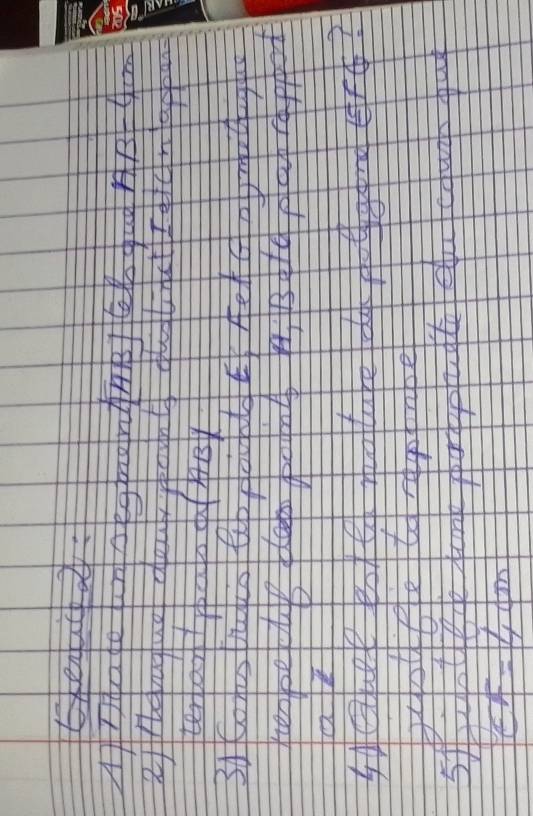 Exercice 2:
1) Trace un segment [AB] tels que AB = 4cm
2) Marque deux points distinct I et C n'appar-
tenant pas a (AB)
3) Construis les points E, F et G symétrique
respectif des points A, B et C par rapport
a I
4) Quel est la nature du polygone EFG?
justifie ta reponse
5) justifie une propriete du cours que
EF = 4 cm
502